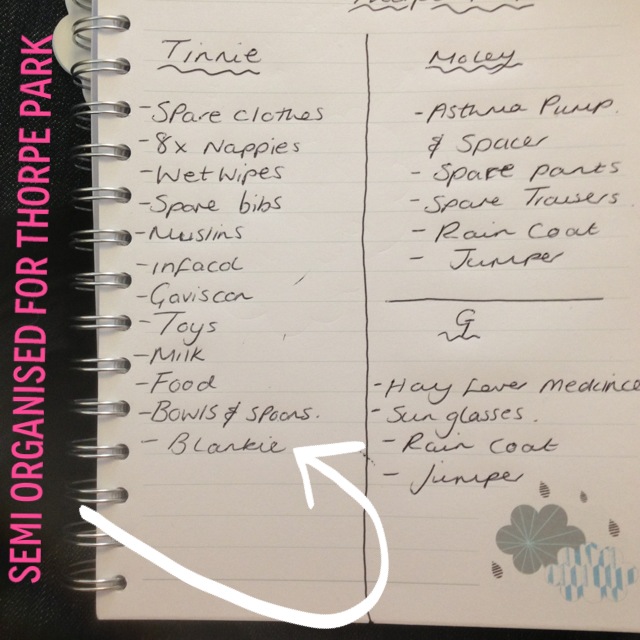 SEMI ORGANISED FOR THORPE PARK
Tinnie
-Spare clothes
-8x Nappies
-Wet Wipes
-Spare bibs
-Muslins
-infacol
-Gaviscon
-Toys
-Milk
-Food
-Bowls & spoons.
- Blankie
Moley
-Asthma Pump.
& Spacer
- Spare pants
-Spare Trousers.
- Rain Coat
- Jumper
G
-Hay fever Medicince
-Sunglasses.
- Rain Coat
- Jumper